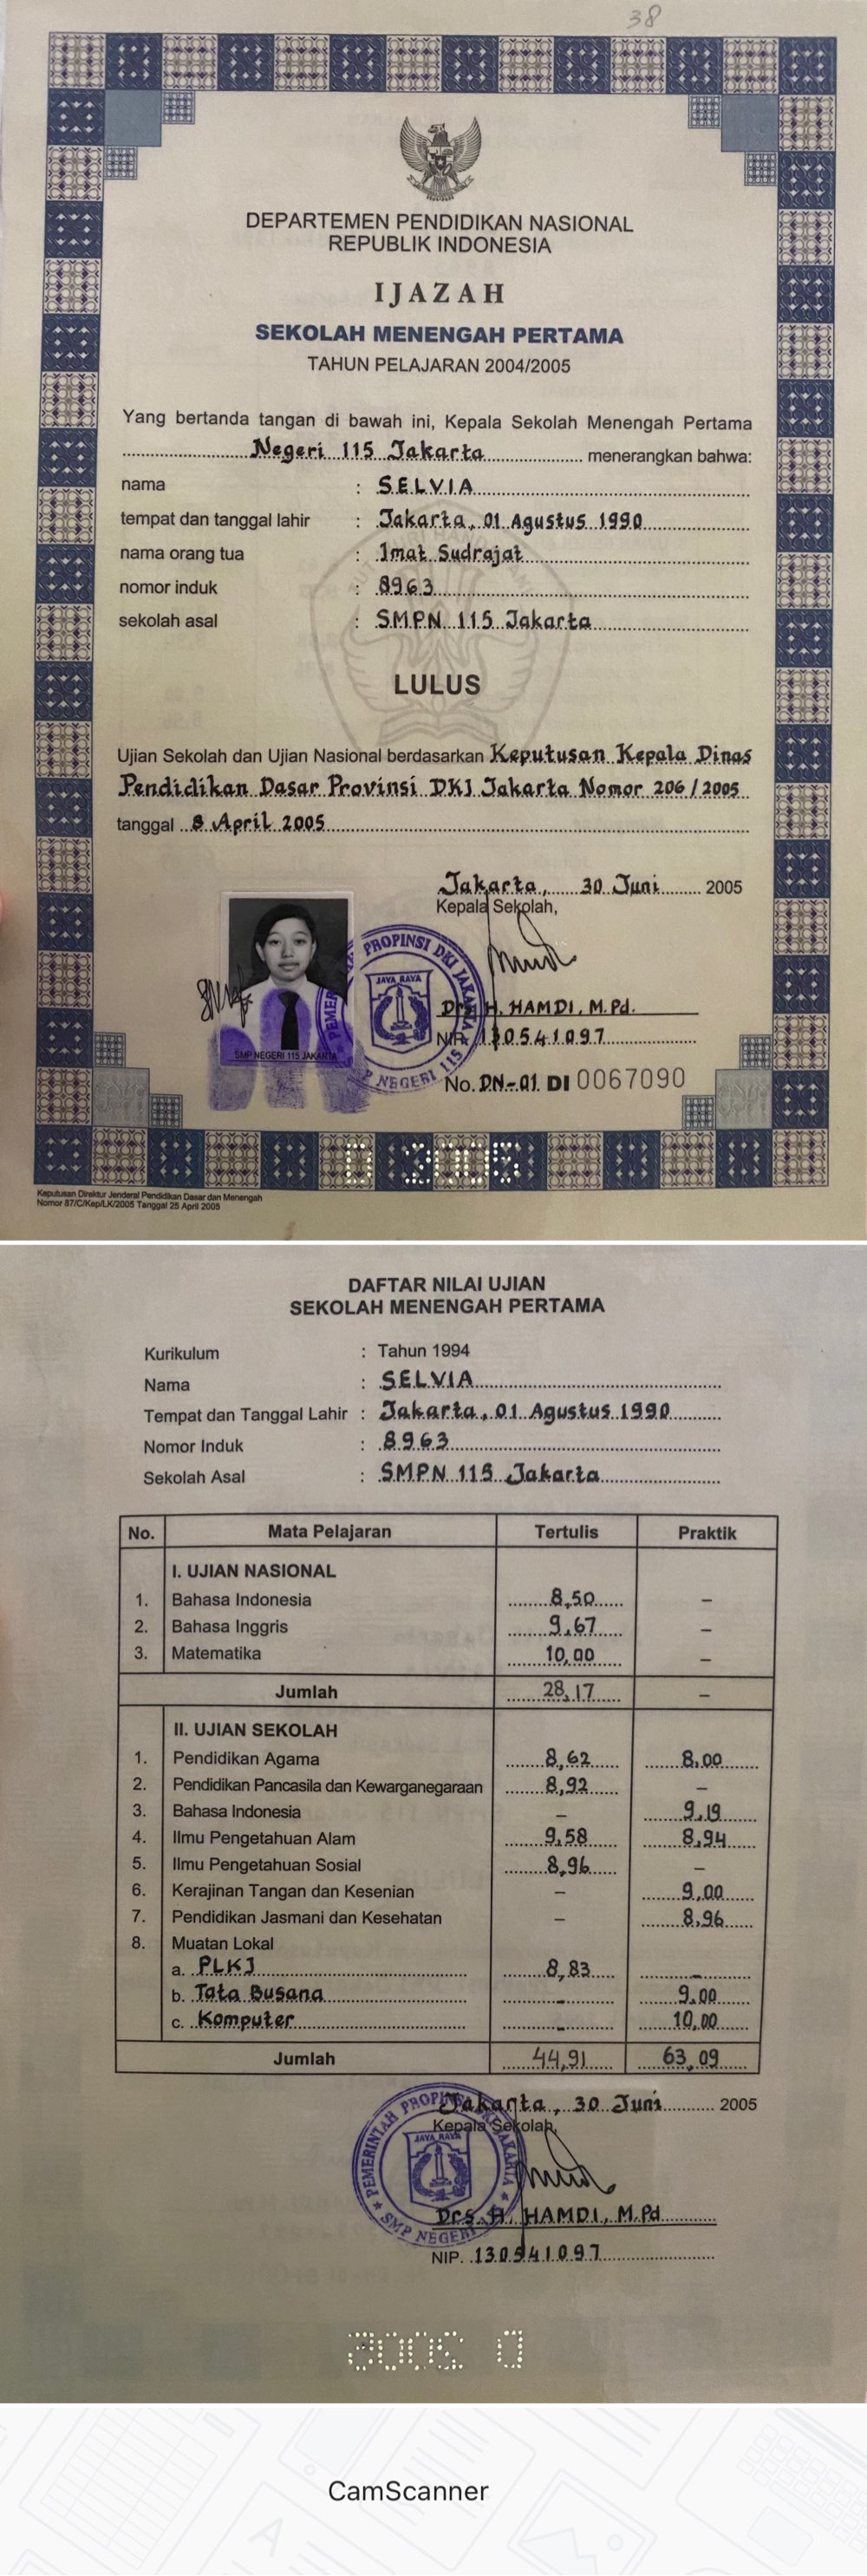 38
DEPARTEMEN PENDIDIKAN NASIONAL
REPUBLIK INDONESIA
IJAZAH
SEKOLAH MENENGAH PERTAMA
TAHUN PELAJARAN 2004/2005
Yang bertanda tangan di bawah ini, Kepala Sekolah Menengah Pertama
Negeri 115 Jakarta menerangkan bahwa:
nama : SELVIA
tempat dan tanggal lahir : Jakarta, 01 Agustus 1990
nama orang tua : Imat Sudrajat
nomor induk : 8963
sekolah asal : SMPN 115 Jakarta
LULUS
Ujian Sekolah dan Ujian Nasional berdasarkan Keputusan Kepala Dinas
Pendidikan Dasar Provinsi DKI Jakarta Nomor 206 / 2005
tanggal 8 April 2005
Jakarta, 30 Juni 2005
Kepala Sekolah,
PROPINSI DKI JAKARTA
JAYA RAYA
P NEGERI 115
Drs. H. HAMDI, M.Pd.
NIP. 130541097
SMP NEGERI 115 JAKARTA
No. DN-01 DI 0067090
D 2005
Keputusan Direktur Jenderal Pendidikan Dasar dan Menengah
Nomor 87/C/Kep/LK/2005 Tanggal 25 April 2005
DAFTAR NILAI UJIAN
SEKOLAH MENENGAH PERTAMA
Kurikulum : Tahun 1994
Nama : SELVIA
Tempat dan Tanggal Lahir : Jakarta, 01 Agustus 1990
Nomor Induk : 8963
Sekolah Asal : SMPN 115 Jakarta
No. Mata Pelajaran Tertulis Praktik
I. UJIAN NASIONAL
1. Bahasa Indonesia 8,50 –
2. Bahasa Inggris 9,67 –
3. Matematika 10,00 –
Jumlah 28,17 –
II. UJIAN SEKOLAH
1. Pendidikan Agama 8,62 8,00
2. Pendidikan Pancasila dan Kewarganegaraan 8,92 –
3. Bahasa Indonesia – 9,19
4. Ilmu Pengetahuan Alam 9,58 8,94
5. Ilmu Pengetahuan Sosial 8,96 –
6. Kerajinan Tangan dan Kesenian – 9,00
7. Pendidikan Jasmani dan Kesehatan – 8,96
8. Muatan Lokal
a. PLKJ 8,83 –
b. Tata Busana – 9,00
c. Komputer – 10,00
Jumlah 44,91 63,09
Jakarta, 30 Juni 2005
Kepala Sekolah,
PEMERINTAH PROPINSI DKI JAKARTA
JAYA RAYA
SMP NEGERI
Drs. H. HAMDI, M.Pd
NIP. 130541097
D 2005
CamScanner